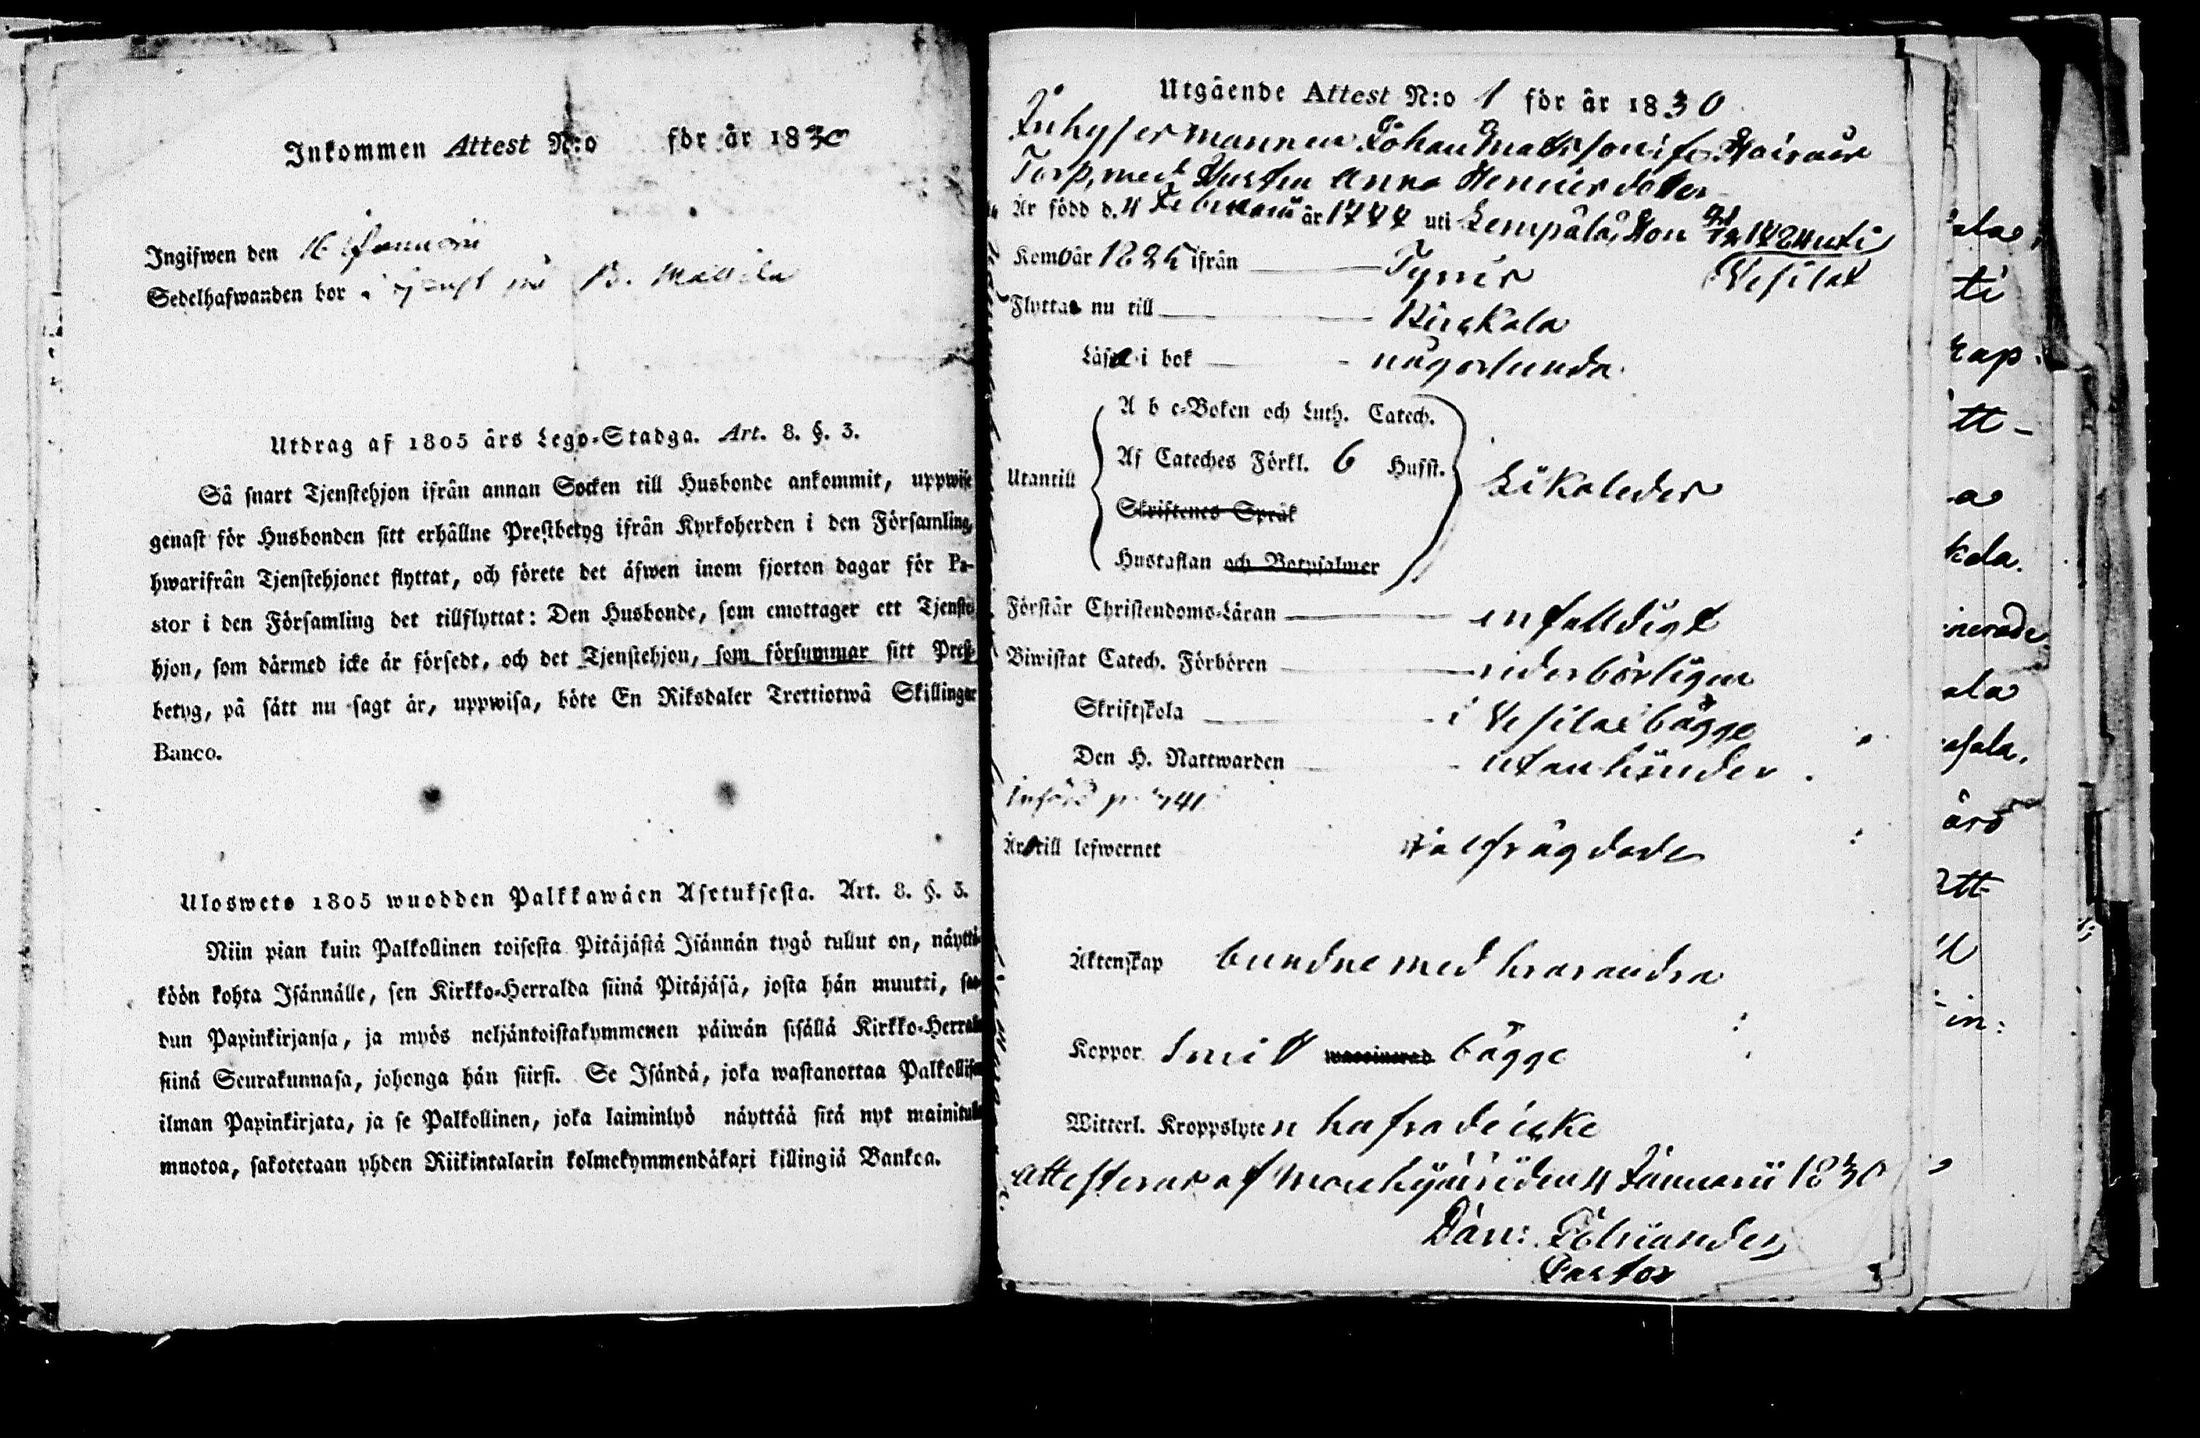 Inkommen Attest N:o för år 1830
Ingifwen den 16 Januarii
Sedelhafwanden bor i på B. Mattila
Utdrag af 1805 års Lego-Stadga. Art. 8. §. 3.
Så snart Tjenstehjon ifrån annan Socken till Husbonde ankommit, uppwise
genast för Husbonden sitt erhållne Prestbetyg ifrån Kyrkoherden i den Församling,
hwarifrån Tjenstehjonet flyttat, och förete det äfwen inom fjorton dagar för Pa-
stor i den Församling det tillflyttat: Den Husbonde, som emottager ett Tjenste-
hjon, som därmed icke är försedt, och det Tjenstehjon, som försummar sitt Prest-
betyg, på sätt nu sagt är, uppwisa, böte En Riksdaler Trettiotwå Skillingar
Banco.
Ulosweto 1805 wuodden Palkkawäen Asetuksesta. Art. 8. §. 3.
Niin pian kuin Palkollinen toisesta Pitäjästä Isännän tygö tullut on, näyttä-
köön kohta Isännälle, sen Kirkko-Herralda siinä Pitäjäsä, josta hän muutti, saa-
dun Papinkirjansa, ja myös neljäntoistakymmenen päiwän sisällä Kirkko-Herralle
siinä Seurakunnasa, johonga hän siirsi. Se Isändä, joka wastanottaa Palkollisen
ilman Papinkirjata, ja se Palkollinen, joka laiminlyö näyttää sitä nyt mainitulla
muotoa, sakotetaan yhden Riikintalarin kolmekymmendäkaxi killingiä Bankoa.
Utgående Attest N:o 1 för år 1830
Inhysesmannen Johan Mattsson ifr.
Torp, med Hustru Anna Henricsdotter
Är född d. 4 Februarii år 1777 uti Lempälä, Hon 1784 uti
Vesilax
Kom år 1825 ifrån Tyrvis
Flyttas nu till Birkkala
Läsa i bok någorlunda
Utantill
A b c-Boken och Luth. Catech.
Af Cateches Förkl. 6 Husst.
Skriftenes Språk
Hustaflan och Botpsalmer
Likaledes
Förstår Christendoms-Läran enfalldigt
Biwistat Catech. Förhören vederbörligen
Skriftskola i Vesilax bägge
Den H. Nattwarden utan hinder
Införd p. 241
Äro till lefwernet välfrägdade
Äktenskap bundne med hvarandra
Koppor bägge
Witterl. Kroppslyten hafva de icke
Attesteras af Mouhijärvi den 4 Januarii 1830
Dan:
Pastor